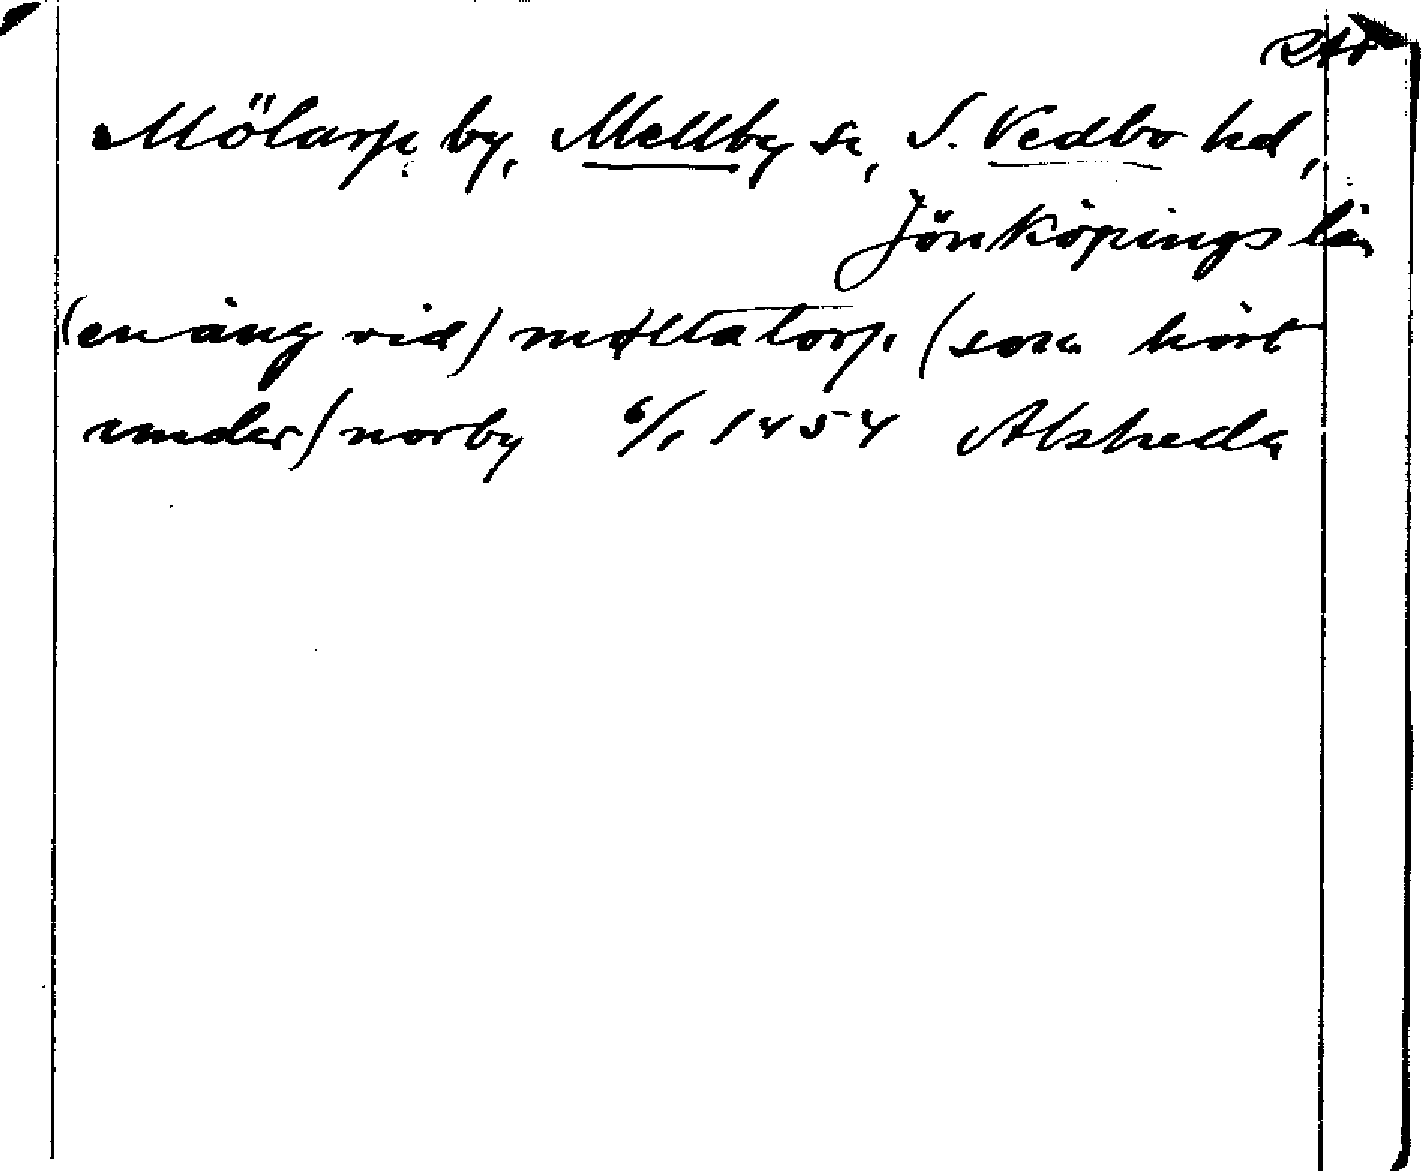 Mölarp by, Mellby sn, S. Vedbo hd,
Jönköpings län
(en äng vid) møltatorp (som hört
under) norby 6/1 1454 Alsheda